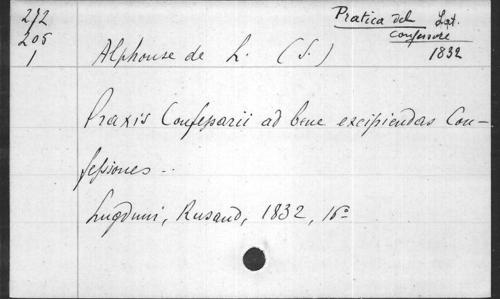 272
205
1
Pratica del Lat.
Confessore
1832
Alphonse de L. (S.)
Praxis Confessarii ad bene excipiendas Con-
fessiones..
Lugduni, Rusand, 1832, 16°